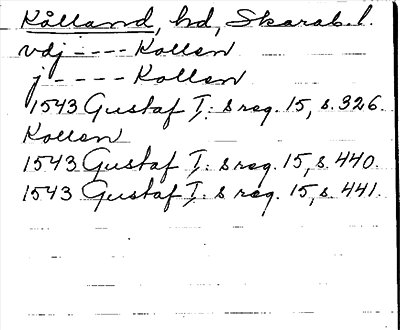 Kålland, hd, Skarab. l.
vdj ---- Kollen
j ----- Kollen
1543 Gustaf I: s reg. 15, s. 326.
Kollen
1543 Gustaf I: s reg. 15, s. 440.
1543 Gustaf I: s reg. 15, s. 441.